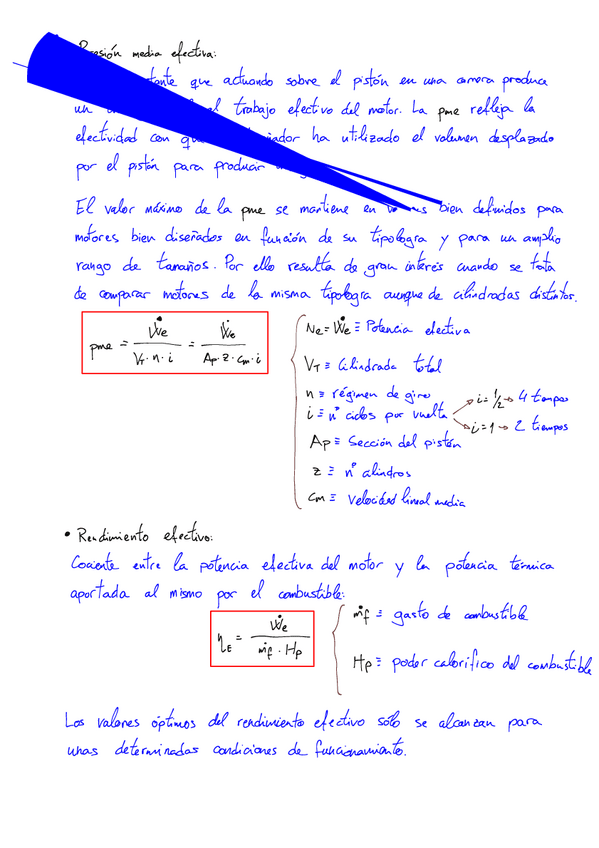 Presión media efectiva:
que actuando sobre el pistón en una carrera produce
un trabajo efectivo del motor. La pme refleja la
efectividad con ha utilizado el volumen desplazado
por el pistón para producir
El valor máximo de la pme se mantiene en bien definidos para
motores bien diseñados en función de su tipología y para un amplio
rango de tamaños. Por ello resulta de gran interés cuando se trata
de comparar motores de la misma tipología aunque de cilindradas distintas.
pme = Ẇe / (V_T · n · i) = Ẇe / (Ap · z · cm · i)
Ne = Ẇe ≡ Potencia efectiva
V_T ≡ Cilindrada total
n ≡ régimen de giro
i ≡ nº ciclos por vuelta → i = 1/2 → 4 tiempos
→ i = 1 → 2 tiempos
Ap ≡ Sección del pistón
z ≡ nº cilindros
cm ≡ velocidad lineal media
• Rendimiento efectivo:
Cociente entre la potencia efectiva del motor y la potencia térmica
aportada al mismo por el combustible:
η_E = Ẇe / (ṁf · Hp)
ṁf ≡ gasto de combustible
Hp ≡ poder calorífico del combustible
Los valores óptimos del rendimiento efectivo sólo se alcanzan para
unas determinadas condiciones de funcionamiento.